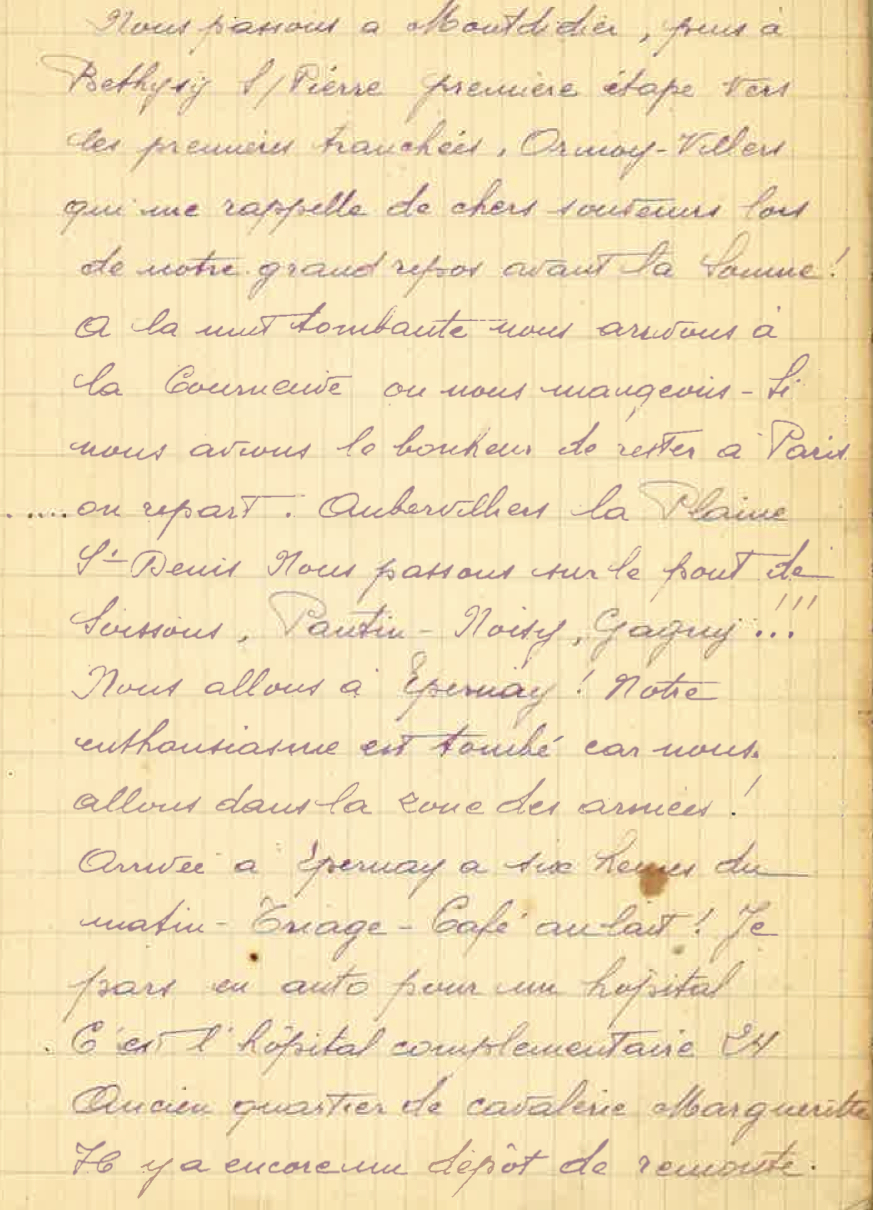 Nous passons a Montdidier, puis à
Bethysy S/Pierre première étape vers
les premières tranchées. Ormoy-Villers
qui me rappelle de chers souvenirs lors
de notre grand repos avant la Somme!
A la nuit tombante nous arrivons à
la Courneuve ou nous mangeons - Si
nous avions le bonheur de rester a Paris
..... on repart. Aubervilliers la Plaine
St-Denis Nous passons sur le pont de
Soissons, Pantin - Noisy, Gagny...!!!
Nous allons à Épernay! Notre
enthousiasme est tombé car nous
allons dans la zone des armées!
Arrivée a Épernay a six heures du
matin - Triage - Café au lait! Je
pars en auto pour un hôpital
C'est l'hôpital complementaire 24
Ancien quartier de cavalerie Margueritte
Il y a encore un dépôt de remonte.